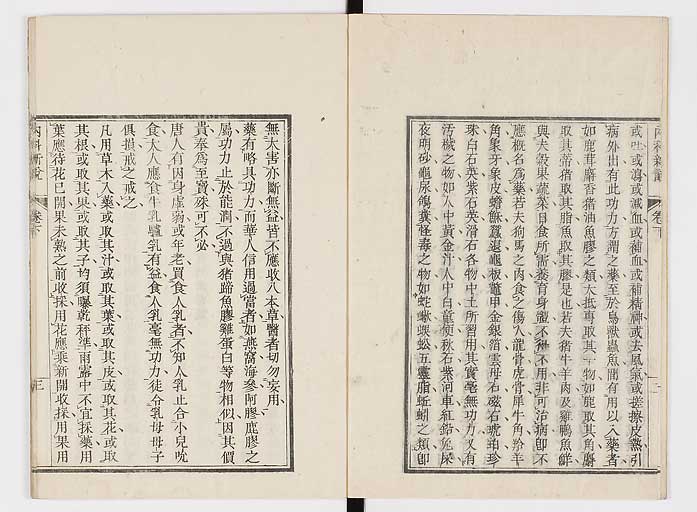 或吐或瀉或減血或補血或補精神或去風氣或搓擦皮熱引
病外出有此功力方謂之藥至於鳥獸蟲魚間有用以入藥者
如鹿茸麝香猪油魚膠之類大抵專取其一物如鹿取其角麝
取其臍猪取其脂魚取其膠是也若夫猪牛羊肉及雞鴨魚鮮
與夫穀果蔬菜日食所需養育身體不得不用非可治病卽不
應槪名爲藥若夫狗馬之肉食之傷人龍骨虎骨犀牛角羚羊
角象牙象皮蟾酥蠶退龜板鼈甲金銀箔雲母石磁石琥珀珍
珠白石英紫石英滑石各物中土所習用其實毫無功力又有
汚穢之物如人中黃金汁人中白童便秋石紫河車紅鉛兔屎
夜明砂龜尿鴿糞怪毒之物如蛇蠍蜈蚣五靈脂蚯蚓之類卽
無大害亦斷無益皆不應收入本草醫者切勿妄用
藥有略具功力而華人信用過當者如燕窩海參阿膠鹿膠之
屬功力止於能潤不過與猪蹄魚膠雞蛋白等物相似因其價
貴奉爲至寶殊可不必
唐人有因身虛弱或年老買食人乳者不知人乳止合小兒吮
食大人應食牛乳驢乳有益食人乳毫無功力徒令乳母母子
俱損戒之戒之
凡用草木入藥或取其汁或取其葉或取其皮或取其花或取
其根或取其果或取其子均須曝乾秤準雨露中不宜採藥用
葉應待花已開果未熟之前收採用花應乘新開收採用果用
內科新說
卷下
三